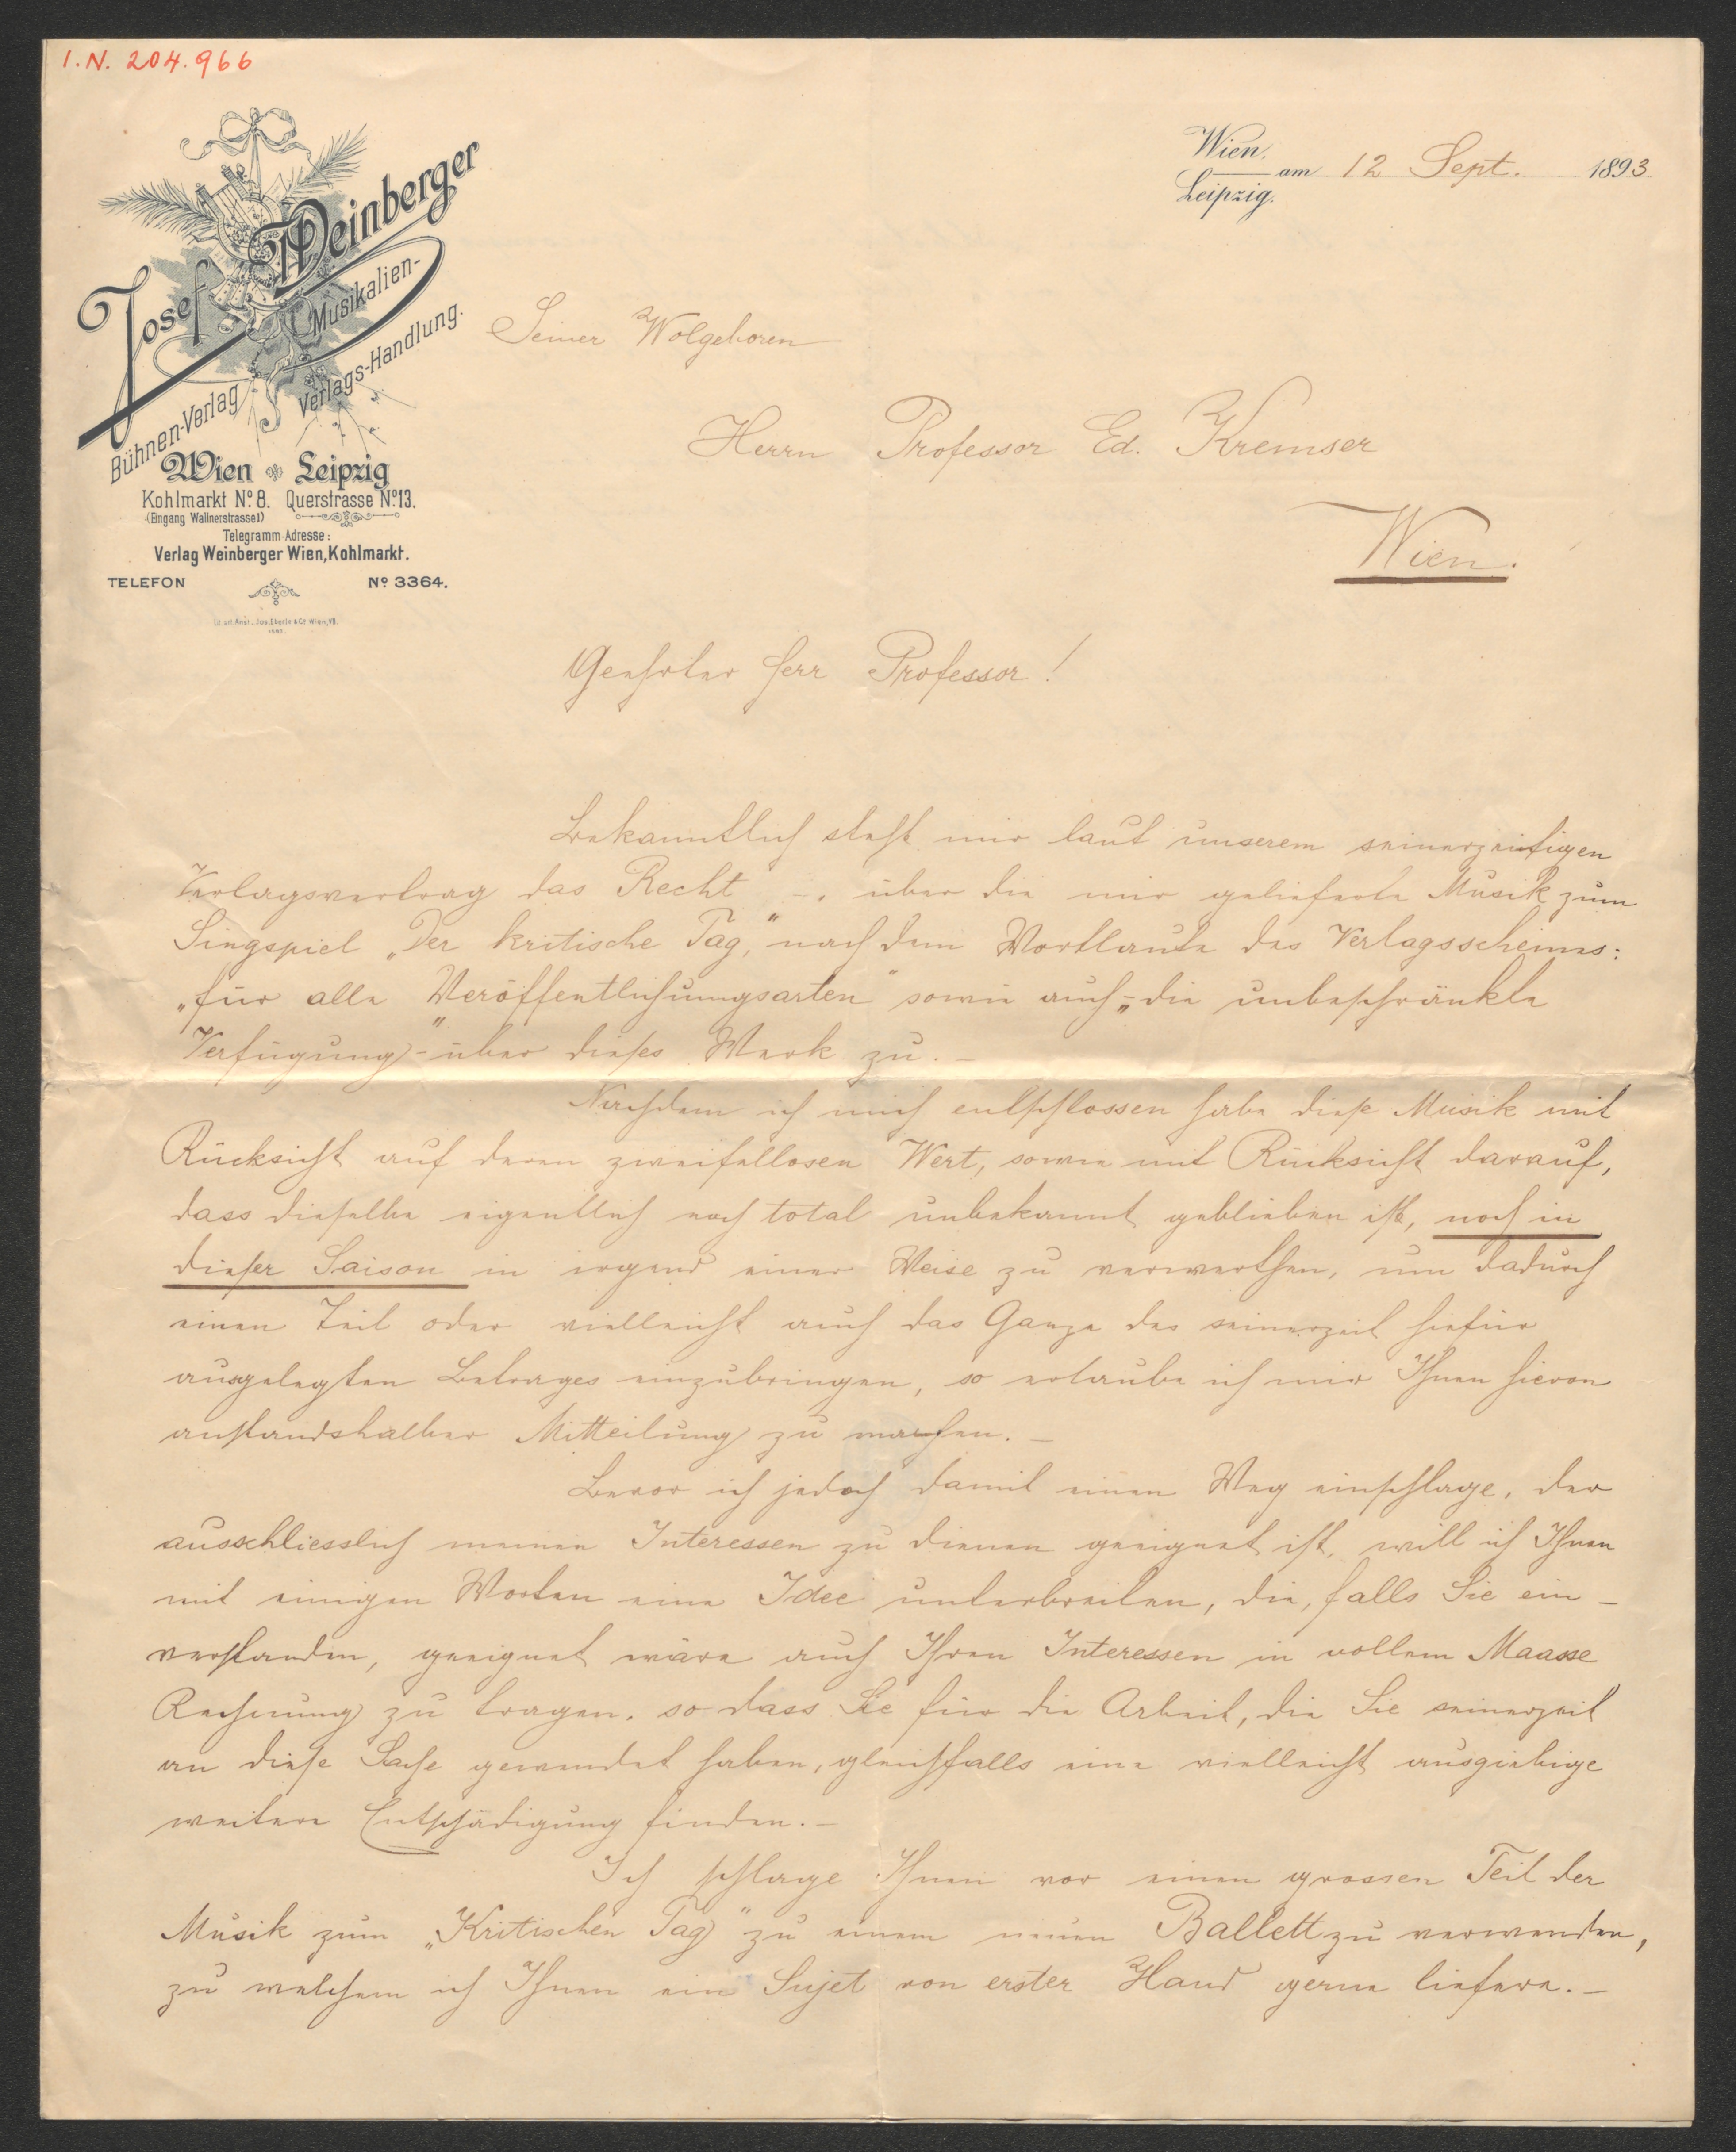 I.N. 204.966
Josef Weinberger
Musikalien-
Bühnen-Verlag Verlags-Handlung.
Wien Leipzig
Kohlmarkt No. 8. Querstrasse No. 13.
(Eingang Wallnerstrasse 1)
Telegramm-Adresse:
Verlag Weinberger Wien, Kohlmarkt.
TELEFON No. 3364.
Wien,
Leipzig. am 12 Sept. 1893
Seiner Wolgeboren
Herrn Professor Ed. Kremser
Wien.
Geehrter Herr Professor!
Bekanntlich steht mir laut unserem seinerzeitigen
Verlagsvertrag das Recht -, über die mir gelieferte Musik zum
Singspiel „Der kritische Tag," nach dem Wortlaute des Verlagsscheines:
„für alle Veröffentlichungsarten" sowie auch „die unbeschränkte
Verfügung" - über dieses Werk zu. -
Nachdem ich mich entschlossen habe diese Musik mit
Rücksicht auf deren zweifellosen Wert, sowie mit Rücksicht darauf,
dass dieselbe eigentlich noch total unbekannt geblieben ist, noch in
dieser Saison in irgend einer Weise zu verwerthen, um dadurch
einen Teil oder vielleicht auch das Ganze des seinerzeit hiefür
ausgelegten Betrages einzubringen, so erlaube ich mir Ihnen hievon
anstandshalber Mitteilung zu machen. -
Bevor ich jedoch damit einen Weg einschlage, der
ausschliesslich meinen Interessen zu dienen geeignet ist, will ich Ihnen
mit einigen Worten eine Idee unterbreiten, die, falls Sie ein-
verstanden, geeignet wäre auch Ihren Interessen in vollem Maasse
Rechnung zu tragen, so dass Sie für die Arbeit, die Sie seinerzeit
an diese Sache gewendet haben, gleichfalls eine vielleicht ausgiebige
weitere Entschädigung finden. -
Ich schlage Ihnen vor einen grossen Teil der
Musik zum „Kritischen Tag" zu einem neuen Ballett zu verwenden,
zu welchem ich Ihnen ein Sujet von erster Hand gerne liefere. -